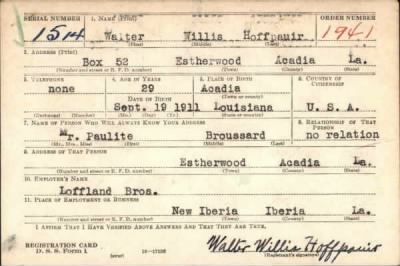 SERIAL NUMBER 1. NAME (Print) ORDER NUMBER
1514 Walter Willis Hoffpauir 1941
(First) (Middle) (Last)
2. ADDRESS (Print)
Box 52 Estherwood Acadia La.
(Number and street or R. F. D. number) (Town) (County) (State)
3. TELEPHONE 4. AGE IN YEARS 5. PLACE OF BIRTH 6. COUNTRY OF CITIZENSHIP
none 29 Acadia
DATE OF BIRTH (Town or county)
Sept. 19 1911 Louisiana U. S. A.
(Mo.) (Day) (Yr.) (State or country)
7. NAME OF PERSON WHO WILL ALWAYS KNOW YOUR ADDRESS 8. RELATIONSHIP OF THAT PERSON
Mr. Paulite Broussard no relation
(Mr., Mrs., Miss) (First) (Middle) (Last)
9. ADDRESS OF THAT PERSON
Estherwood Acadia La.
(Number and street or R. F. D. number) (Town) (County) (State)
10. EMPLOYER'S NAME
Loffland Bros.
11. PLACE OF EMPLOYMENT OR BUSINESS
New Iberia Iberia La.
(Number and street or R. F. D. number) (Town) (County) (State)
I AFFIRM THAT I HAVE VERIFIED ABOVE ANSWERS AND THAT THEY ARE TRUE.
REGISTRATION CARD
D. S. S. FORM 1 (over) Walter Willis Hoffpauir
(Registrant's signature)